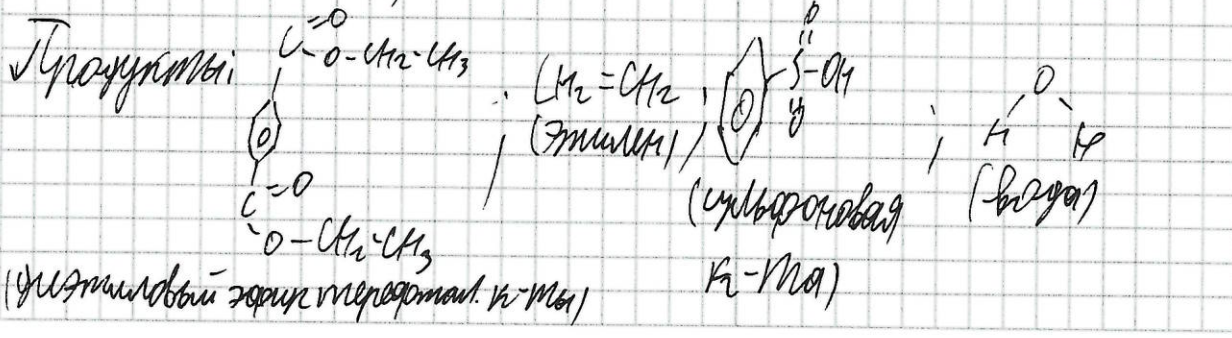 Продукты:
C=O
O-CH2-CH3
C=O
O-CH2-CH3
(диэтиловый эфир терефтал. к-ты)
; CH2=CH2 ;
(этилен)
O
S-OH
O
(сульфоновая
к-та)
;
O
H H
(вода)